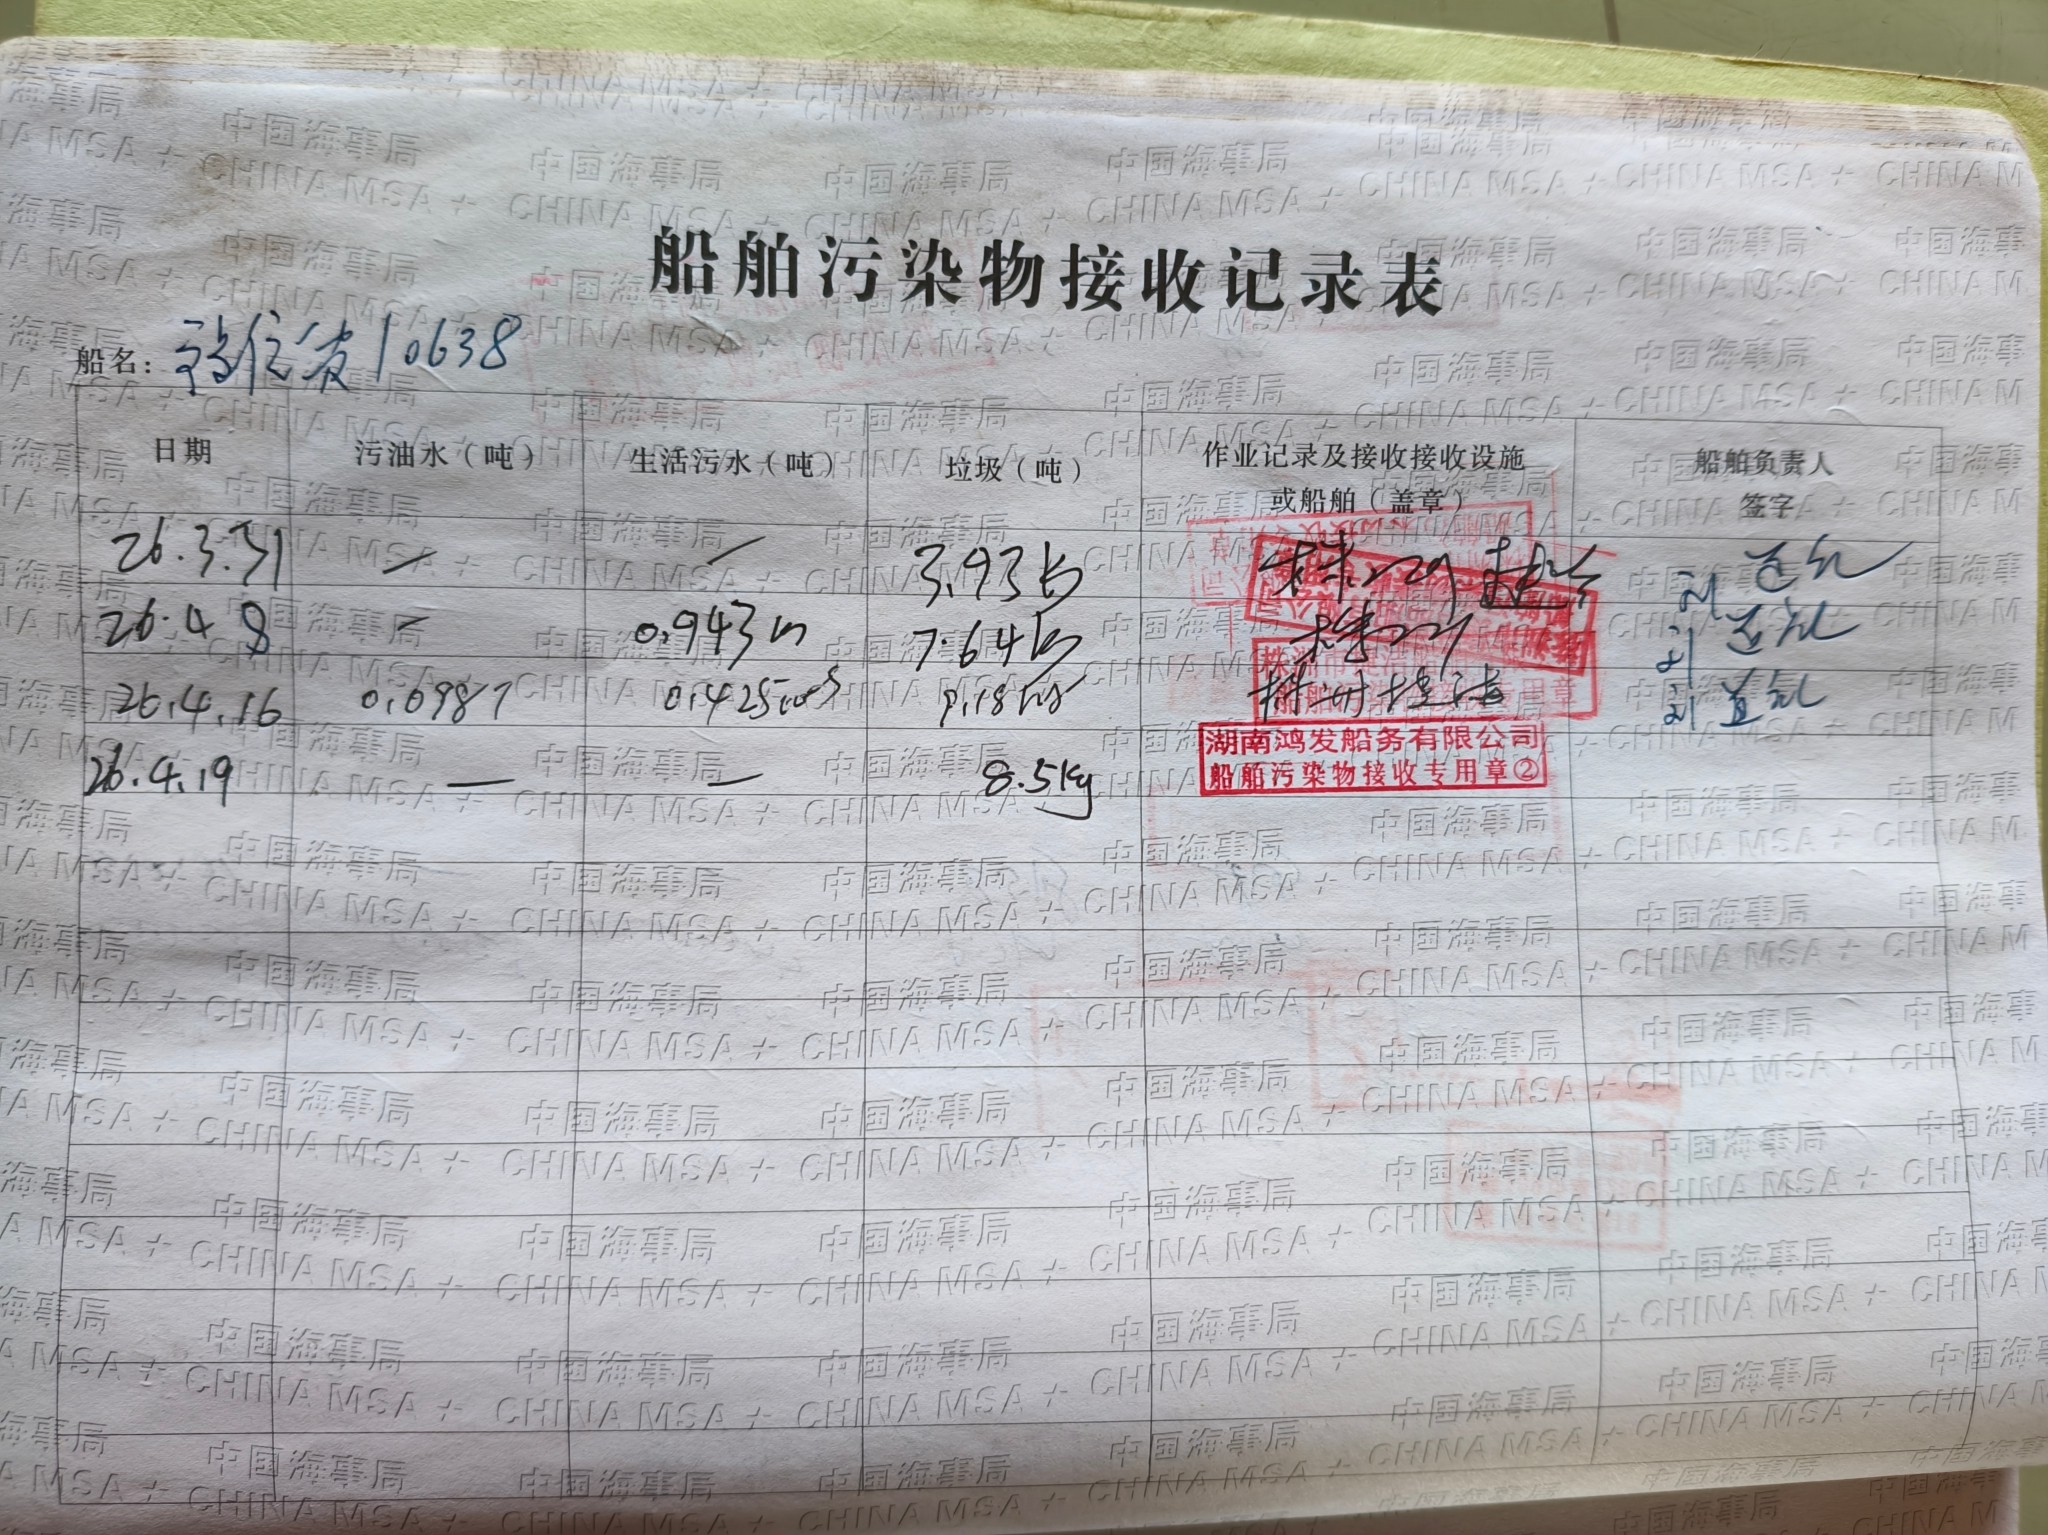 船舶污染物接收记录表
船名：信发10638
日期 污油水（吨） 生活污水（吨） 垃圾（吨） 作业记录及接收接收设施或船舶（盖章） 船舶负责人签字
26.3.31 — — 3.93
26.4.8 — 0.943 7.64
26.4.16 0.0987 0.425 9.18 株洲
26.4.19 — — 8.5kg 湖南鸿发船务有限公司
船舶污染物接收专用章②
中国海事局
CHINA MSA